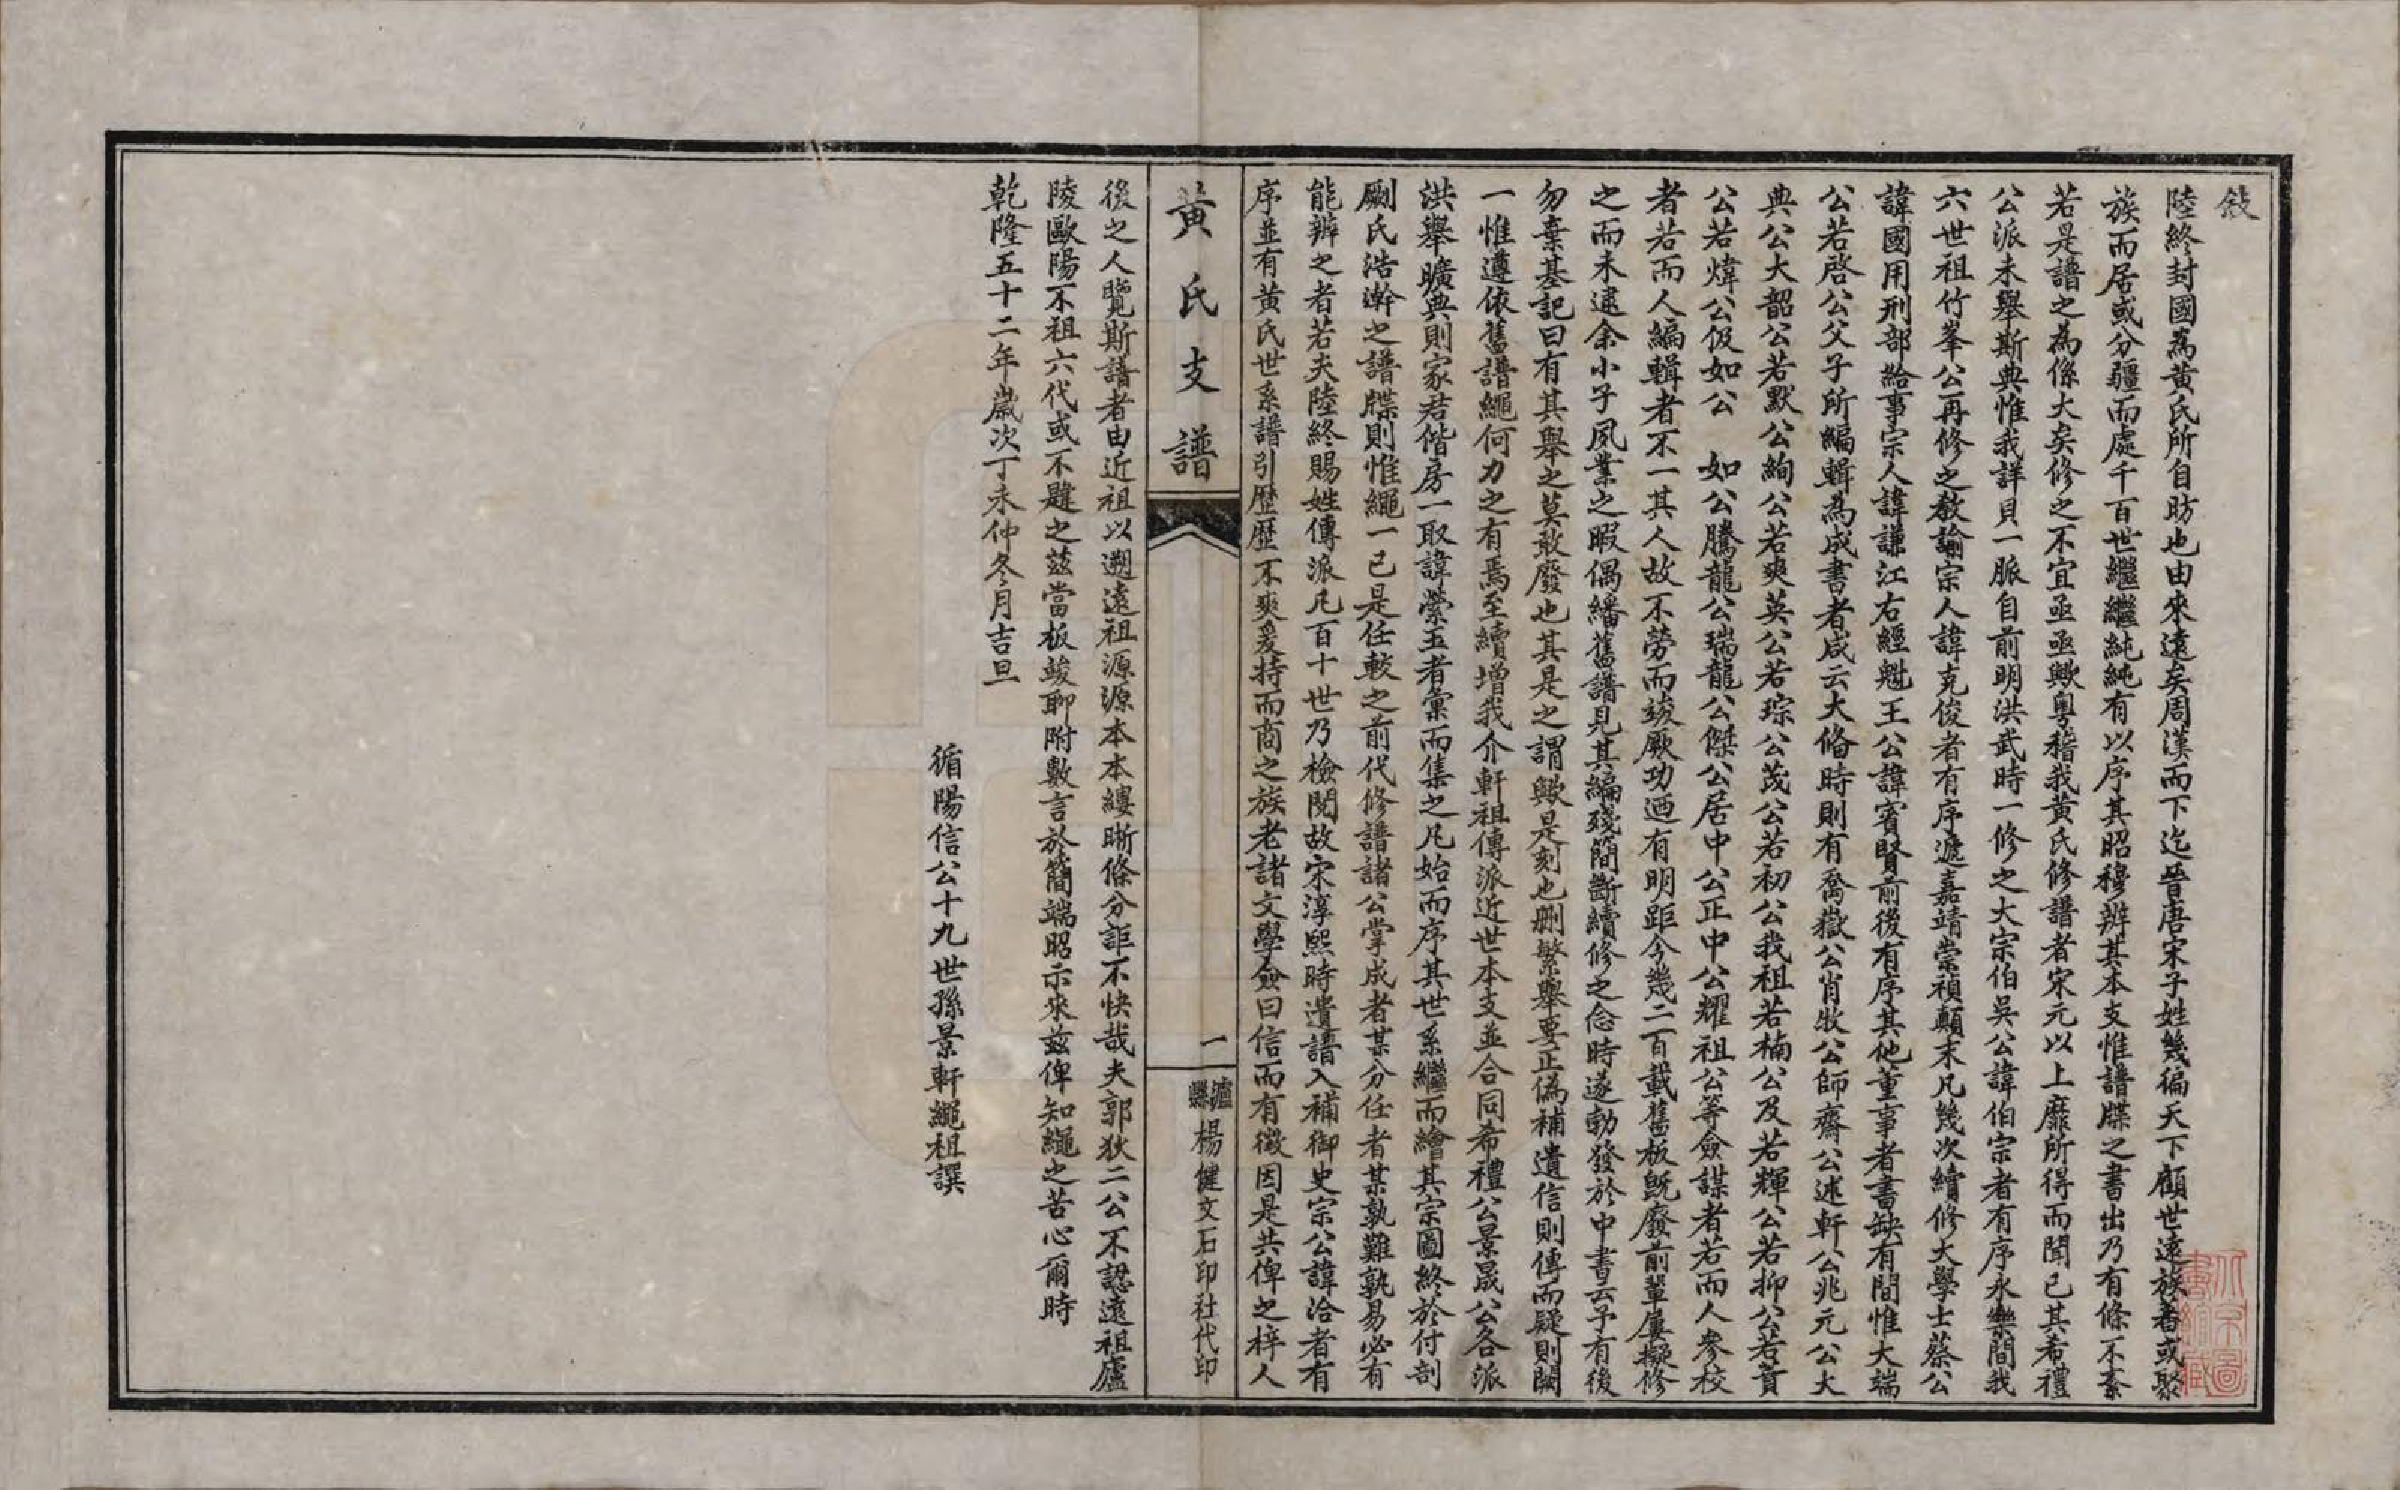 敍
陸終封國為黃氏所自昉也由來遠矣周漢而下迄晉唐宋子姓幾徧天下顧世遠族者或聚
族而居或分疆而處千百世繼繼純純有以序其昭穆辨其本支惟譜牒之書出乃有條不紊
若是譜之為係大矣修之不宜亟亟歟粵稽我黃氏修譜者宋元以上靡所得而聞已其希禮
公派未舉斯典惟我詳貝一脈自前明洪武時一修之大宗伯吳公諱伯宗者有序永樂間我
六世祖竹峯公再修之教諭宗人諱克俊者有序遞嘉靖崇禎顛末凡幾次續修大學士蔡公
諱國用刑部給事宗人諱謙江右經魁王公諱賓賢前後有序其他董事者書缺有間惟大端
公若啓公父子所編輯為成書者咸云大脩時則有喬嶽公肖牧公師齋公述軒公兆元公大
典公大韶公若默公絢公若爽英公若琮公茂公若初公我祖若楠公及若輝公若抑公若賁
公若煒公伋如公 如公騰龍公瑞龍公傑公居中公正中公耀祖公等僉謀者若而人參校
者若而人編輯者不一其人故不勞而竣厥功迺有明距今幾二百載舊板旣廢前輩屢擬修
之而未逮余小子夙業之暇偶繙舊譜見其編殘簡斷續修之念時遂勃發於中書云予有後
勿棄基記曰有其舉之莫敢廢也其是之謂歟是刻也刪繁舉要正偽補遺信則傳而疑則闕
一惟遵依舊譜繩何力之有焉至續增我介軒祖傳派近世本支並合同希禮公景晟公各派
洪舉曠典則家君偕房一取諱縈五者彙而集之凡始而序其世系繼而繪其宗圖終於付剖
劂氏浩瀚之譜牒則惟繩一已是任較之前代修譜諸公掌成者某分任者某孰難孰易必有
能辨之者若夫陸終賜姓傳派凡百十世乃檢閱故宋淳熙時遺譜入補御史宗公諱洽者有
序並有黃氏世系譜引歷歷不爽爰持而商之族老諸文學僉曰信而有徵因是共俾之梓人
黃氏支譜
一
瀘縣楊健文石印社代印
後之人覽斯譜者由近祖以遡遠祖源源本本縷晰條分詎不快哉夫郭狄二公不認遠祖廬
陵歐陽不祖六代或不韙之茲當板竣聊附數言於簡端昭示來茲俾知繩之苦心爾時
乾隆五十二年歲次丁未仲冬月吉旦
循陽信公十九世孫景軒繩祖譔